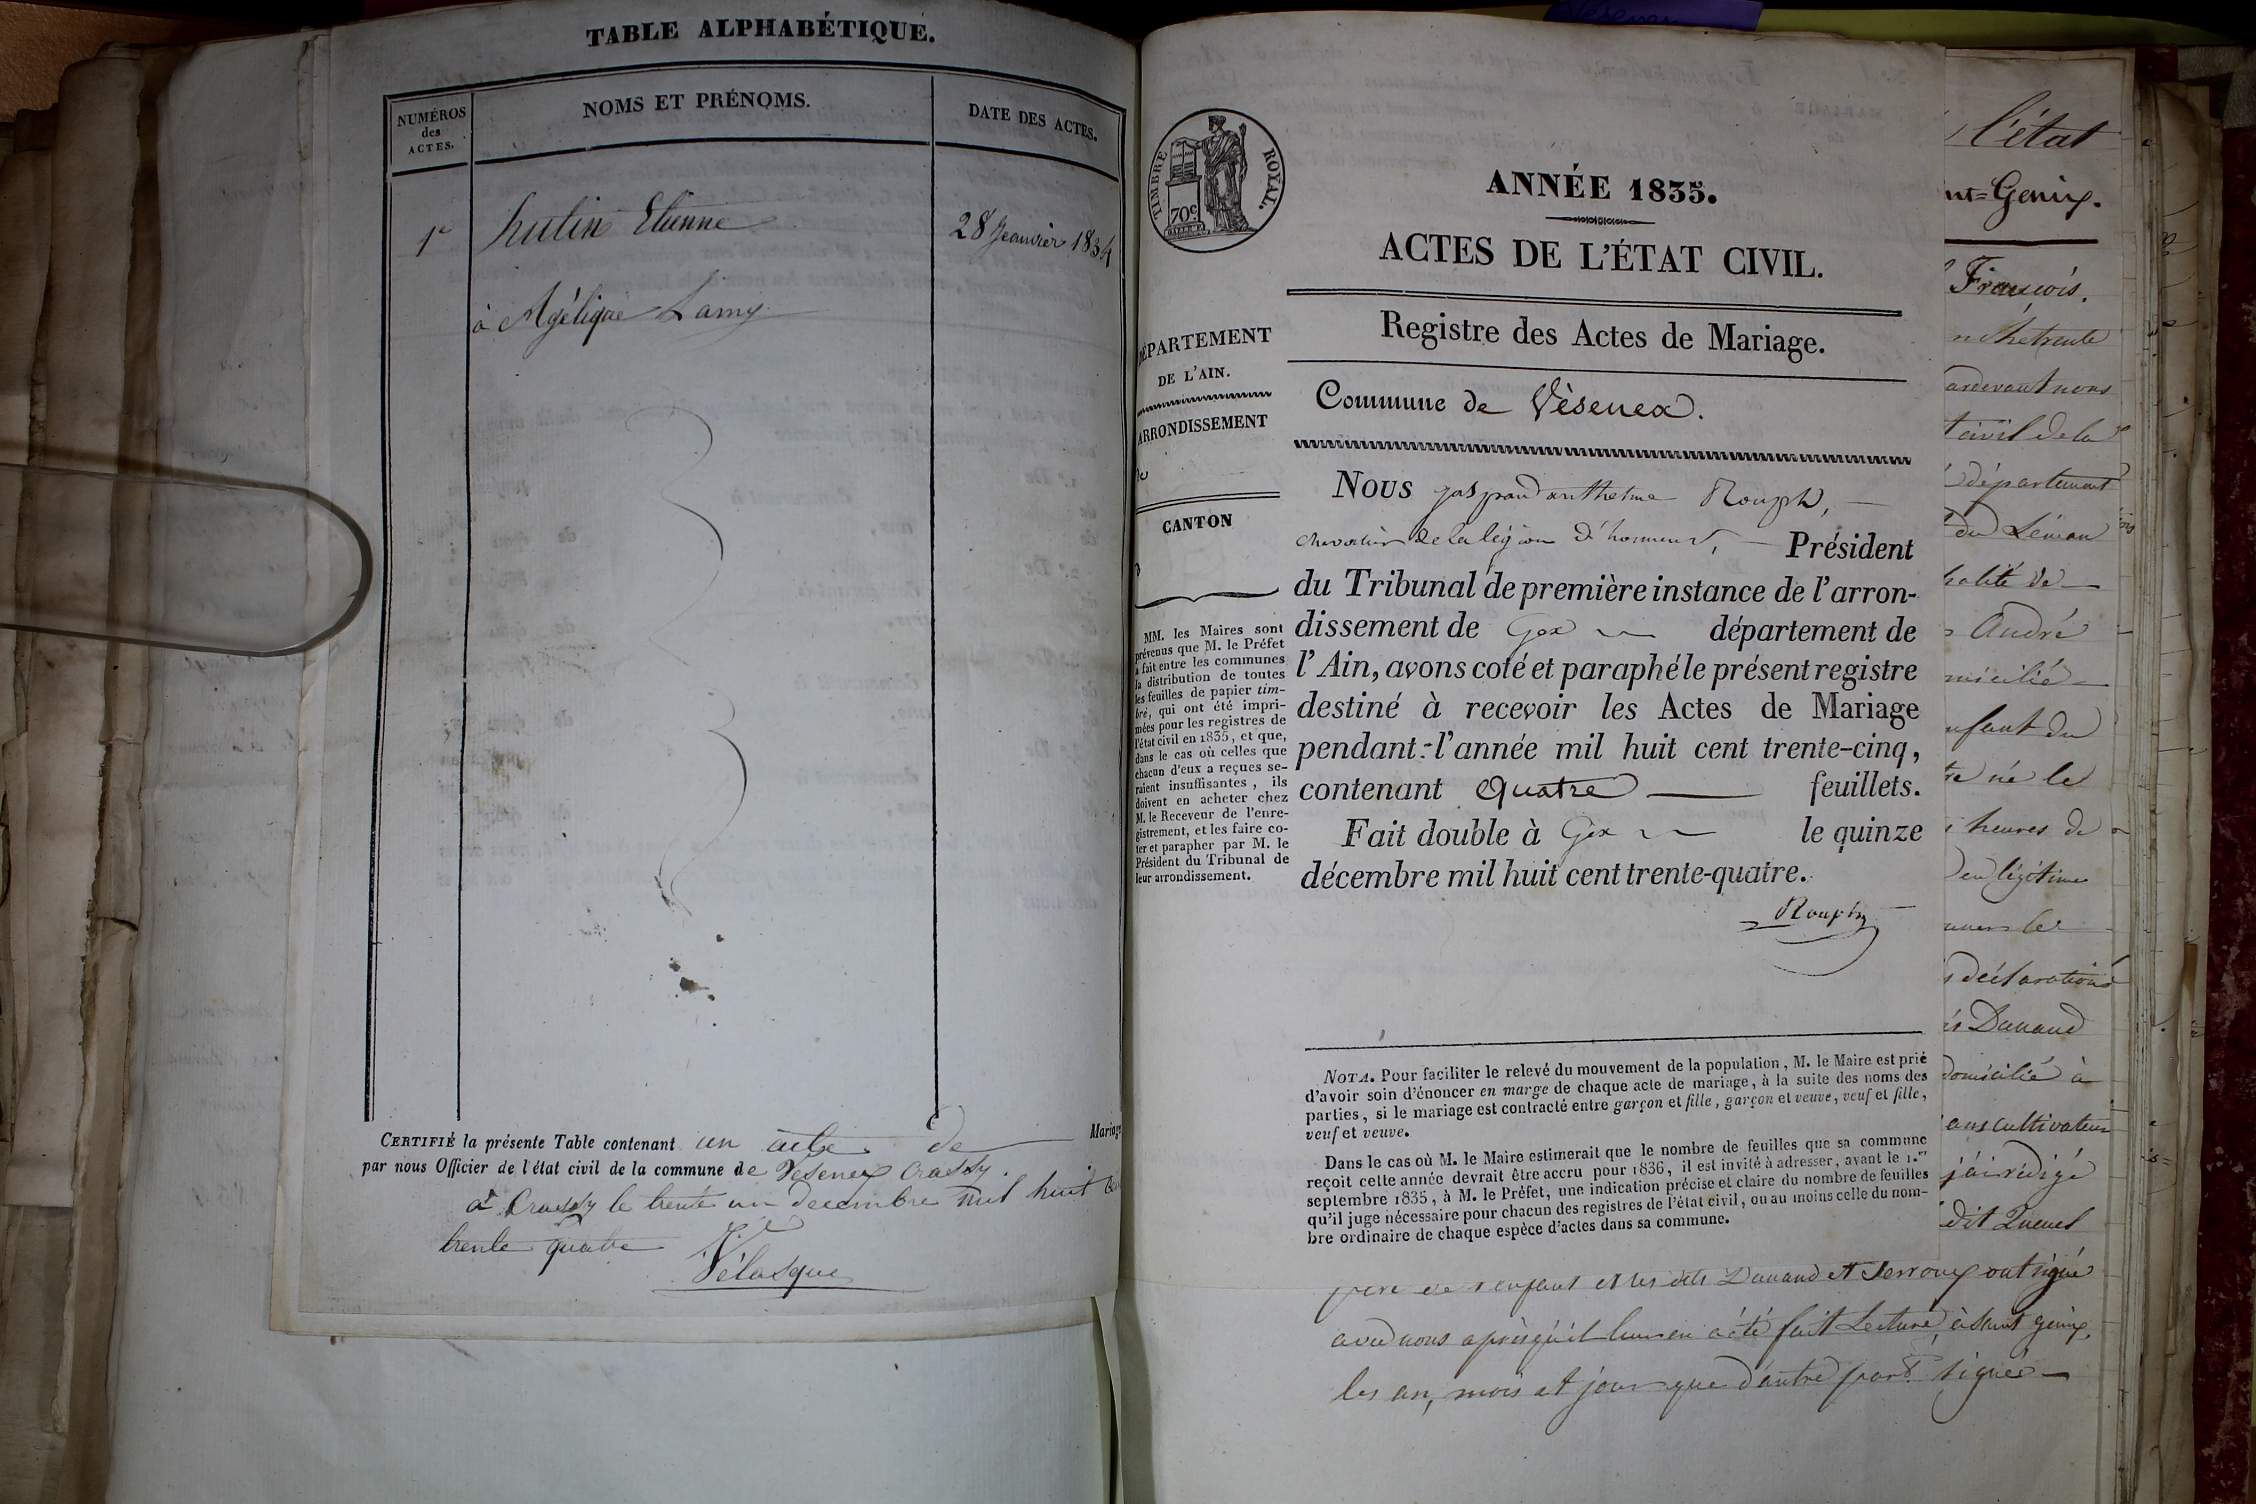 TABLE ALPHABÉTIQUE.
NUMÉROS
des
ACTES.
NOMS ET PRÉNOMS.
DATE DES ACTES.
1er hutin Etienne 28 Jeanvier 1834
à Agélique Lamy
CERTIFIÉ la présente Table contenant un acte de Mariage
par nous Officier de l'état civil de la commune de Vesenex Crassy.
à Crassy le trente un decembre mil huit
trente quatre
Vélasque
TIMBRE ROYAL.
70c
ANNÉE 1835.
ACTES DE L'ÉTAT CIVIL.
Registre des Actes de Mariage.
Commune de Vèsenex.
DÉPARTEMENT
DE L'AIN.
ARRONDISSEMENT
de
CANTON
MM. les Maires sont
prévenus que M. le Préfet
a fait entre les communes
la distribution de toutes
les feuilles de papier tim-
bré, qui ont été impri-
mées pour les registres de
l'état civil en 1835, et que,
dans le cas où celles que
chacun d'eux a reçues se-
raient insuffisantes, ils
doivent en acheter chez
M. le Receveur de l'enre-
gistrement, et les faire co-
ter et parapher par M. le
Président du Tribunal de
leur arrondissement.
NOUS gaspard anthelme Rouph,
chevalier de la légion d'honneur, Président
du Tribunal de première instance de l'arron-
dissement de Gex département de
l'Ain, avons coté et paraphé le présent registre
destiné à recevoir les Actes de Mariage
pendant l'année mil huit cent trente-cinq,
contenant Quatre feuillets.
Fait double à Gex le quinze
décembre mil huit cent trente-quatre.
Rouph
NOTA. Pour faciliter le relevé du mouvement de la population, M. le Maire est prié
d'avoir soin d'énoncer en marge de chaque acte de mariage, à la suite des noms des
parties, si le mariage est contracté entre garçon et fille, garçon et veuve, veuf et fille,
veuf et veuve.
Dans le cas où M. le Maire estimerait que le nombre de feuilles que sa commune
reçoit cette année devrait être accru pour 1836, il est invité à adresser, avant le 1.er
septembre 1835, à M. le Préfet, une indication précise et claire du nombre de feuilles
qu'il juge nécessaire pour chacun des registres de l'état civil, ou au moins celle du nom-
bre ordinaire de chaque espèce d'actes dans sa commune.
l'état
nt=Genix.
François.
trente
ardevant nous
t civil de la
département
du Léman
André
micilié
enfant du
né le
heures de
en légitime
déclarations
Danand
domicilié à
ans cultivateur
j'ai rédigé
dit
pere de l'enfant et les dits Danand et Perroux ont signé
avec nous après qu'il leur en a été fait Lecture, à saint genix,
les an, mois et jour que d'autre part. signés